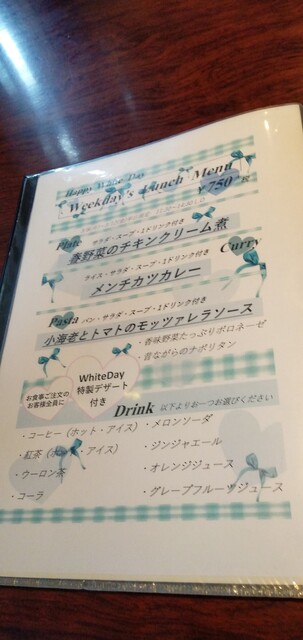 Happy White Day
Weekday's Lunch Menu
￥750
Plate サラダ・スープ・1ドリンク付き
春野菜のチキンクリーム煮
ライス・サラダ・スープ・1ドリンク付き Curry
メンチカツカレー
Pasta パン・サラダ・スープ・1ドリンク付き
小海老とトマトのモッツァレラソース
・香味野菜たっぷりボロネーゼ
・昔ながらのナポリタン
お食事ご注文の
お客様全員に
WhiteDay
特製デザート
付き
Drink 以下よりお一つお選びください
・コーヒー（ホット・アイス）
・紅茶（ホット・アイス）
・ウーロン茶
・コーラ
・メロンソーダ
・ジンジャエール
・オレンジジュース
・グレープフルーツジュース